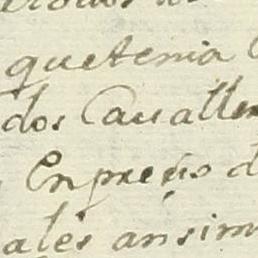 quetenia
dos Cavaller
Enpreño d
ales ansim